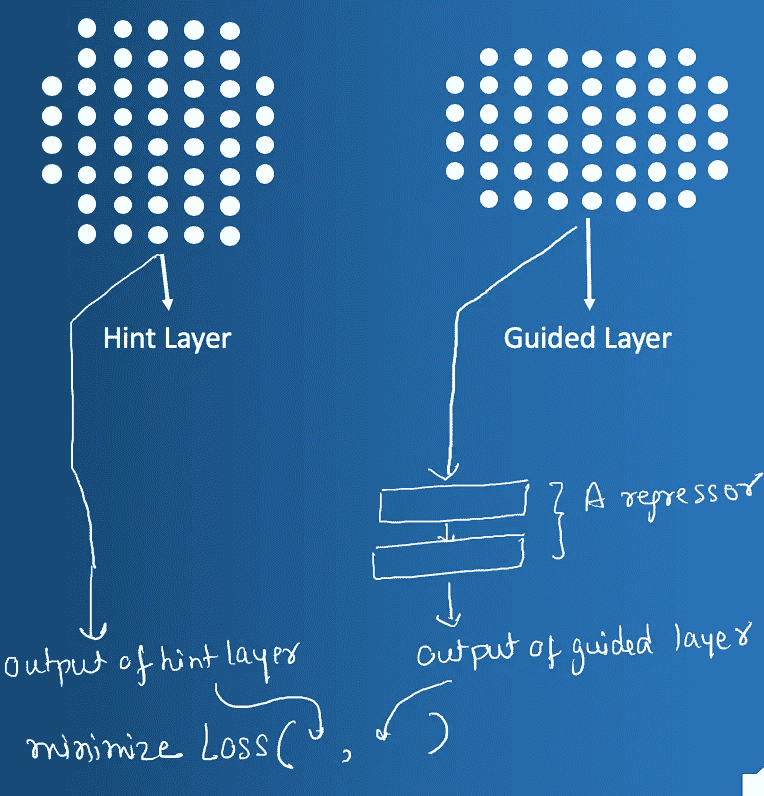 Hint Layer
Guided Layer
A regressor
output of hint layer
output of guided layer
minimize Loss( , )